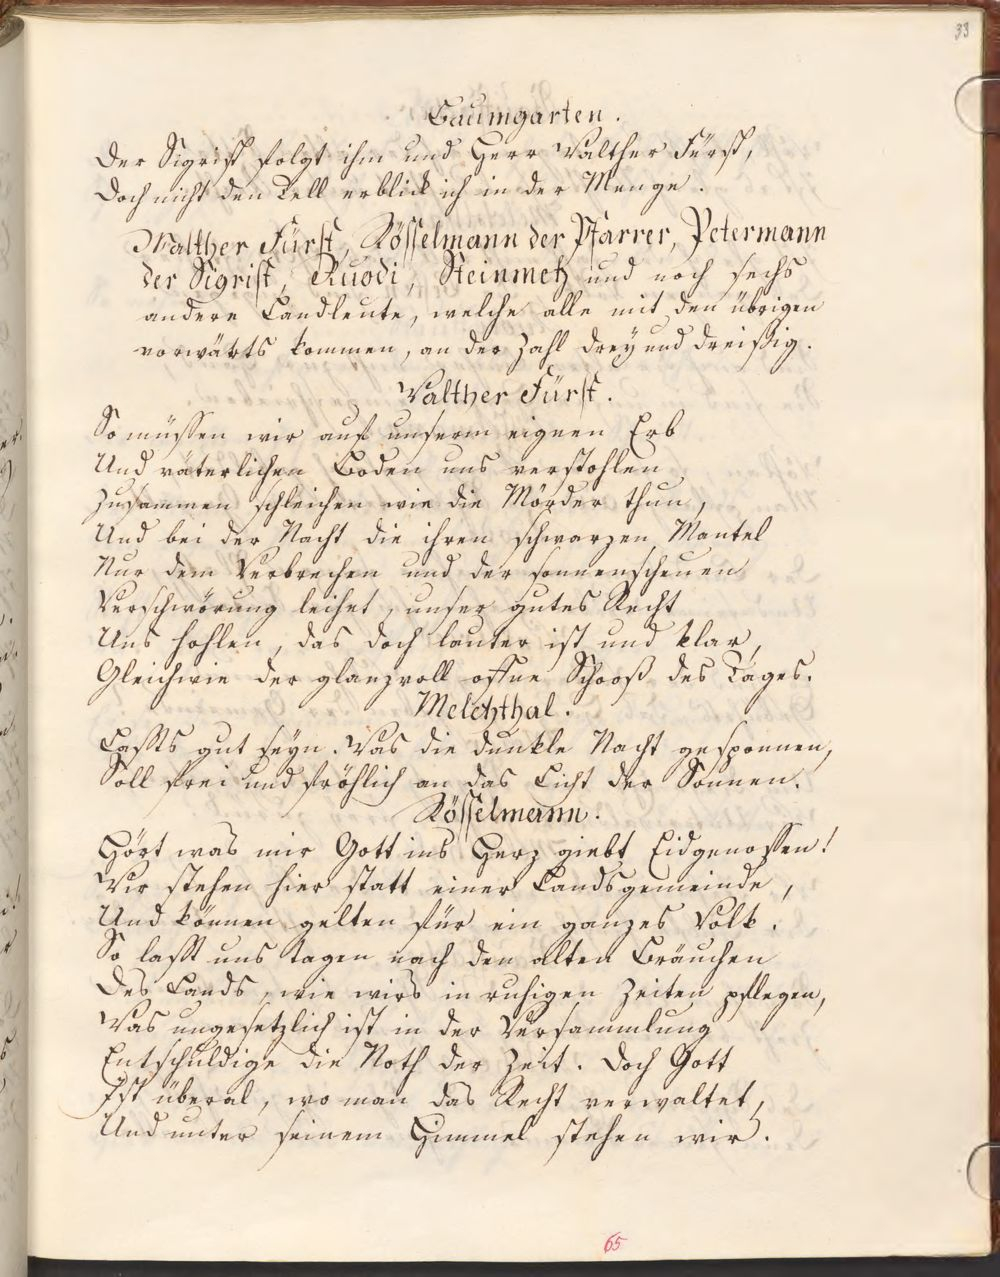 33
Baumgarten.
Der Sigrist folgt ihm und Herr Walther Fürst,
Doch nicht den Tell erblick ich in der Menge.
Walther Fürst, Rösselmann der Pfarrer, Petermann
der Sigrist, Ruodi, Steinmetz und noch sechs
andere Landleute, welche alle mit den übrigen
vorwärts kommen, an der Zahl drey und dreißig.
Walther Fürst.
So müssen wir auf unserm eignen Erb
Und väterlichen Boden uns verstohlen
zusammen schleichen wie die Mörder thun,
Und bei der Nacht die ihren schwarzen Mantel
Nur dem Verbrechen und der sonnenscheuen
Verschwörung leihet, unser gutes Recht
Uns hohlen, das doch lauter ist und klar,
Gleichwie der glanzvoll offne Schooß des Tages.
Melchthal.
Laßts gut seyn. Was die dunkle Nacht gesponnen,
Soll frei und fröhlich an das Licht der Sonnen.
Rösselmann.
Hört was mir Gott ins Herz giebt Eidgenossen!
Wir stehen hier statt einer Landsgemeinde,
Und können gelten für ein ganzes Volk.
So laßt uns tagen nach den alten Bräuchen
Des Lands, wie wirs in ruhigen Zeiten pflegen,
Was ungesetzlich ist in der Versammlung
Entschuldige die Noth der Zeit. Doch Gott
Ist überal, wo man das Recht verwaltet,
Und unter seinem Himmel stehen wir.
65